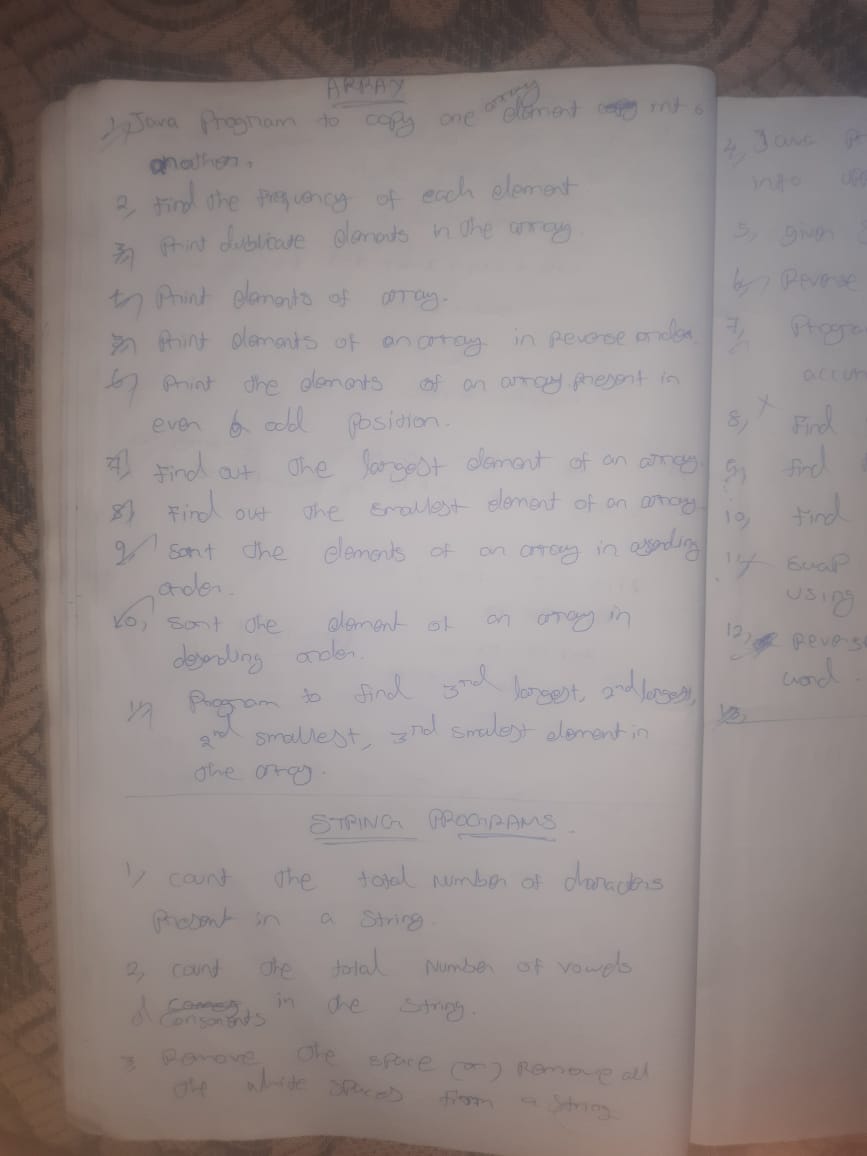 ARRAY
1, Java Program to copy one array element into
another.
2, Find the frequency of each element
3, Print dublicate elements in the array.
4, Print elements of array.
5, Print elements of an array in Reverse order.
6, Print the elements of an array present in
even & odd position.
7, Find out the largest element of an array.
8, Find out the smallest element of an array
9, Sort the elements of an array in
order.
10, Sort the element of an array in
order.
11, Program to find 3rd largest, 2nd largest,
2nd smallest, 3rd smalest element in
the array.
STRING PROGRAMS.
1, Count the total number of characters
Present in a String.
2, Count the total Number of vowels
& Consonents in the String.
3 Remove the space (or) Remove all
the white spaces from a String
4, Java
into
5, given
6, Reverse
7,
8, Find
9, find
10, find
11, swap
using
12,
word.
13,